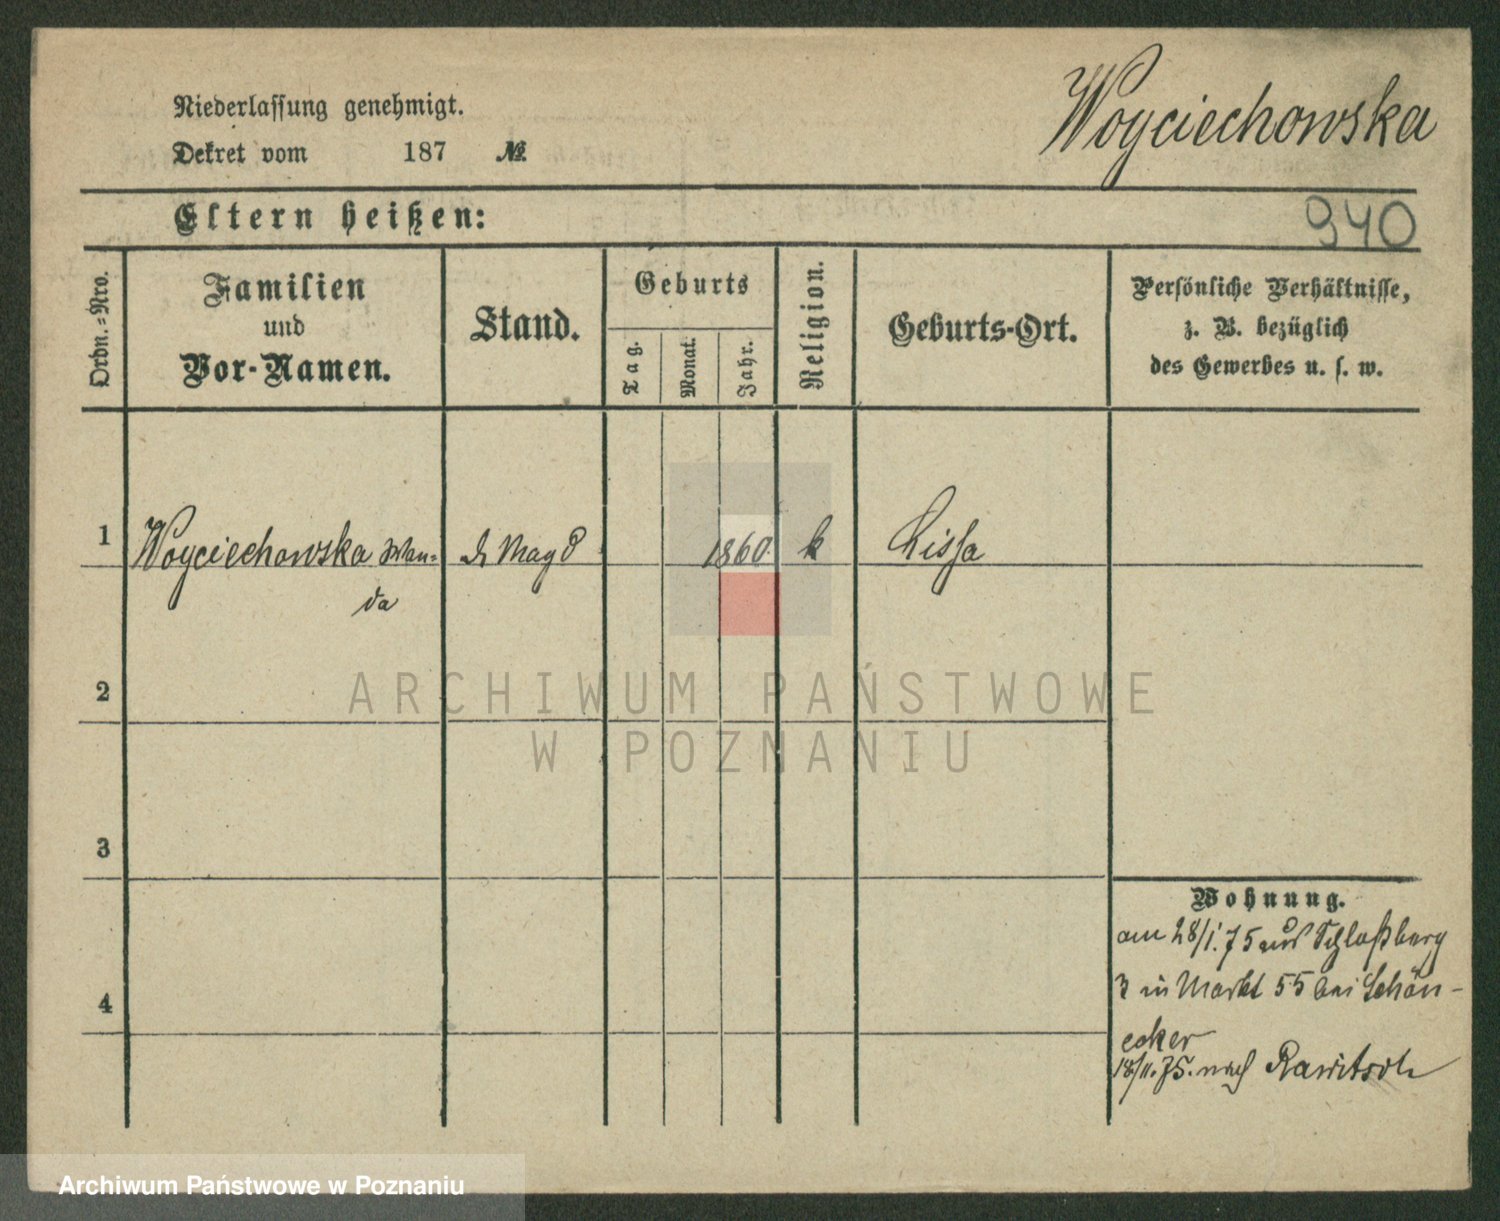 Niederlassung genehmigt.
Woyciechowska
Dekret vom 187 №
Eltern heißen:
940
Ordn.-Nro.
Familien
und
Vor-Namen.
Stand.
Geburts
Tag.
Monat.
Jahr.
Religion.
Geburts-Ort.
Persönliche Verhältnisse,
z. B. bezüglich
des Gewerbes u. s. w.
1 Woyciechowska Wan-
da
Magd
1860.
k
Lissa
2
ARCHIWUM PAŃSTWOWE
W POZNANIU
3
4
Wohnung.
am 28/1.75 aus Schloßberg
3 in Markt 55 bei Schön-
ecker
18/11.75. nach Rawitsch
Archiwum Państwowe w Poznaniu